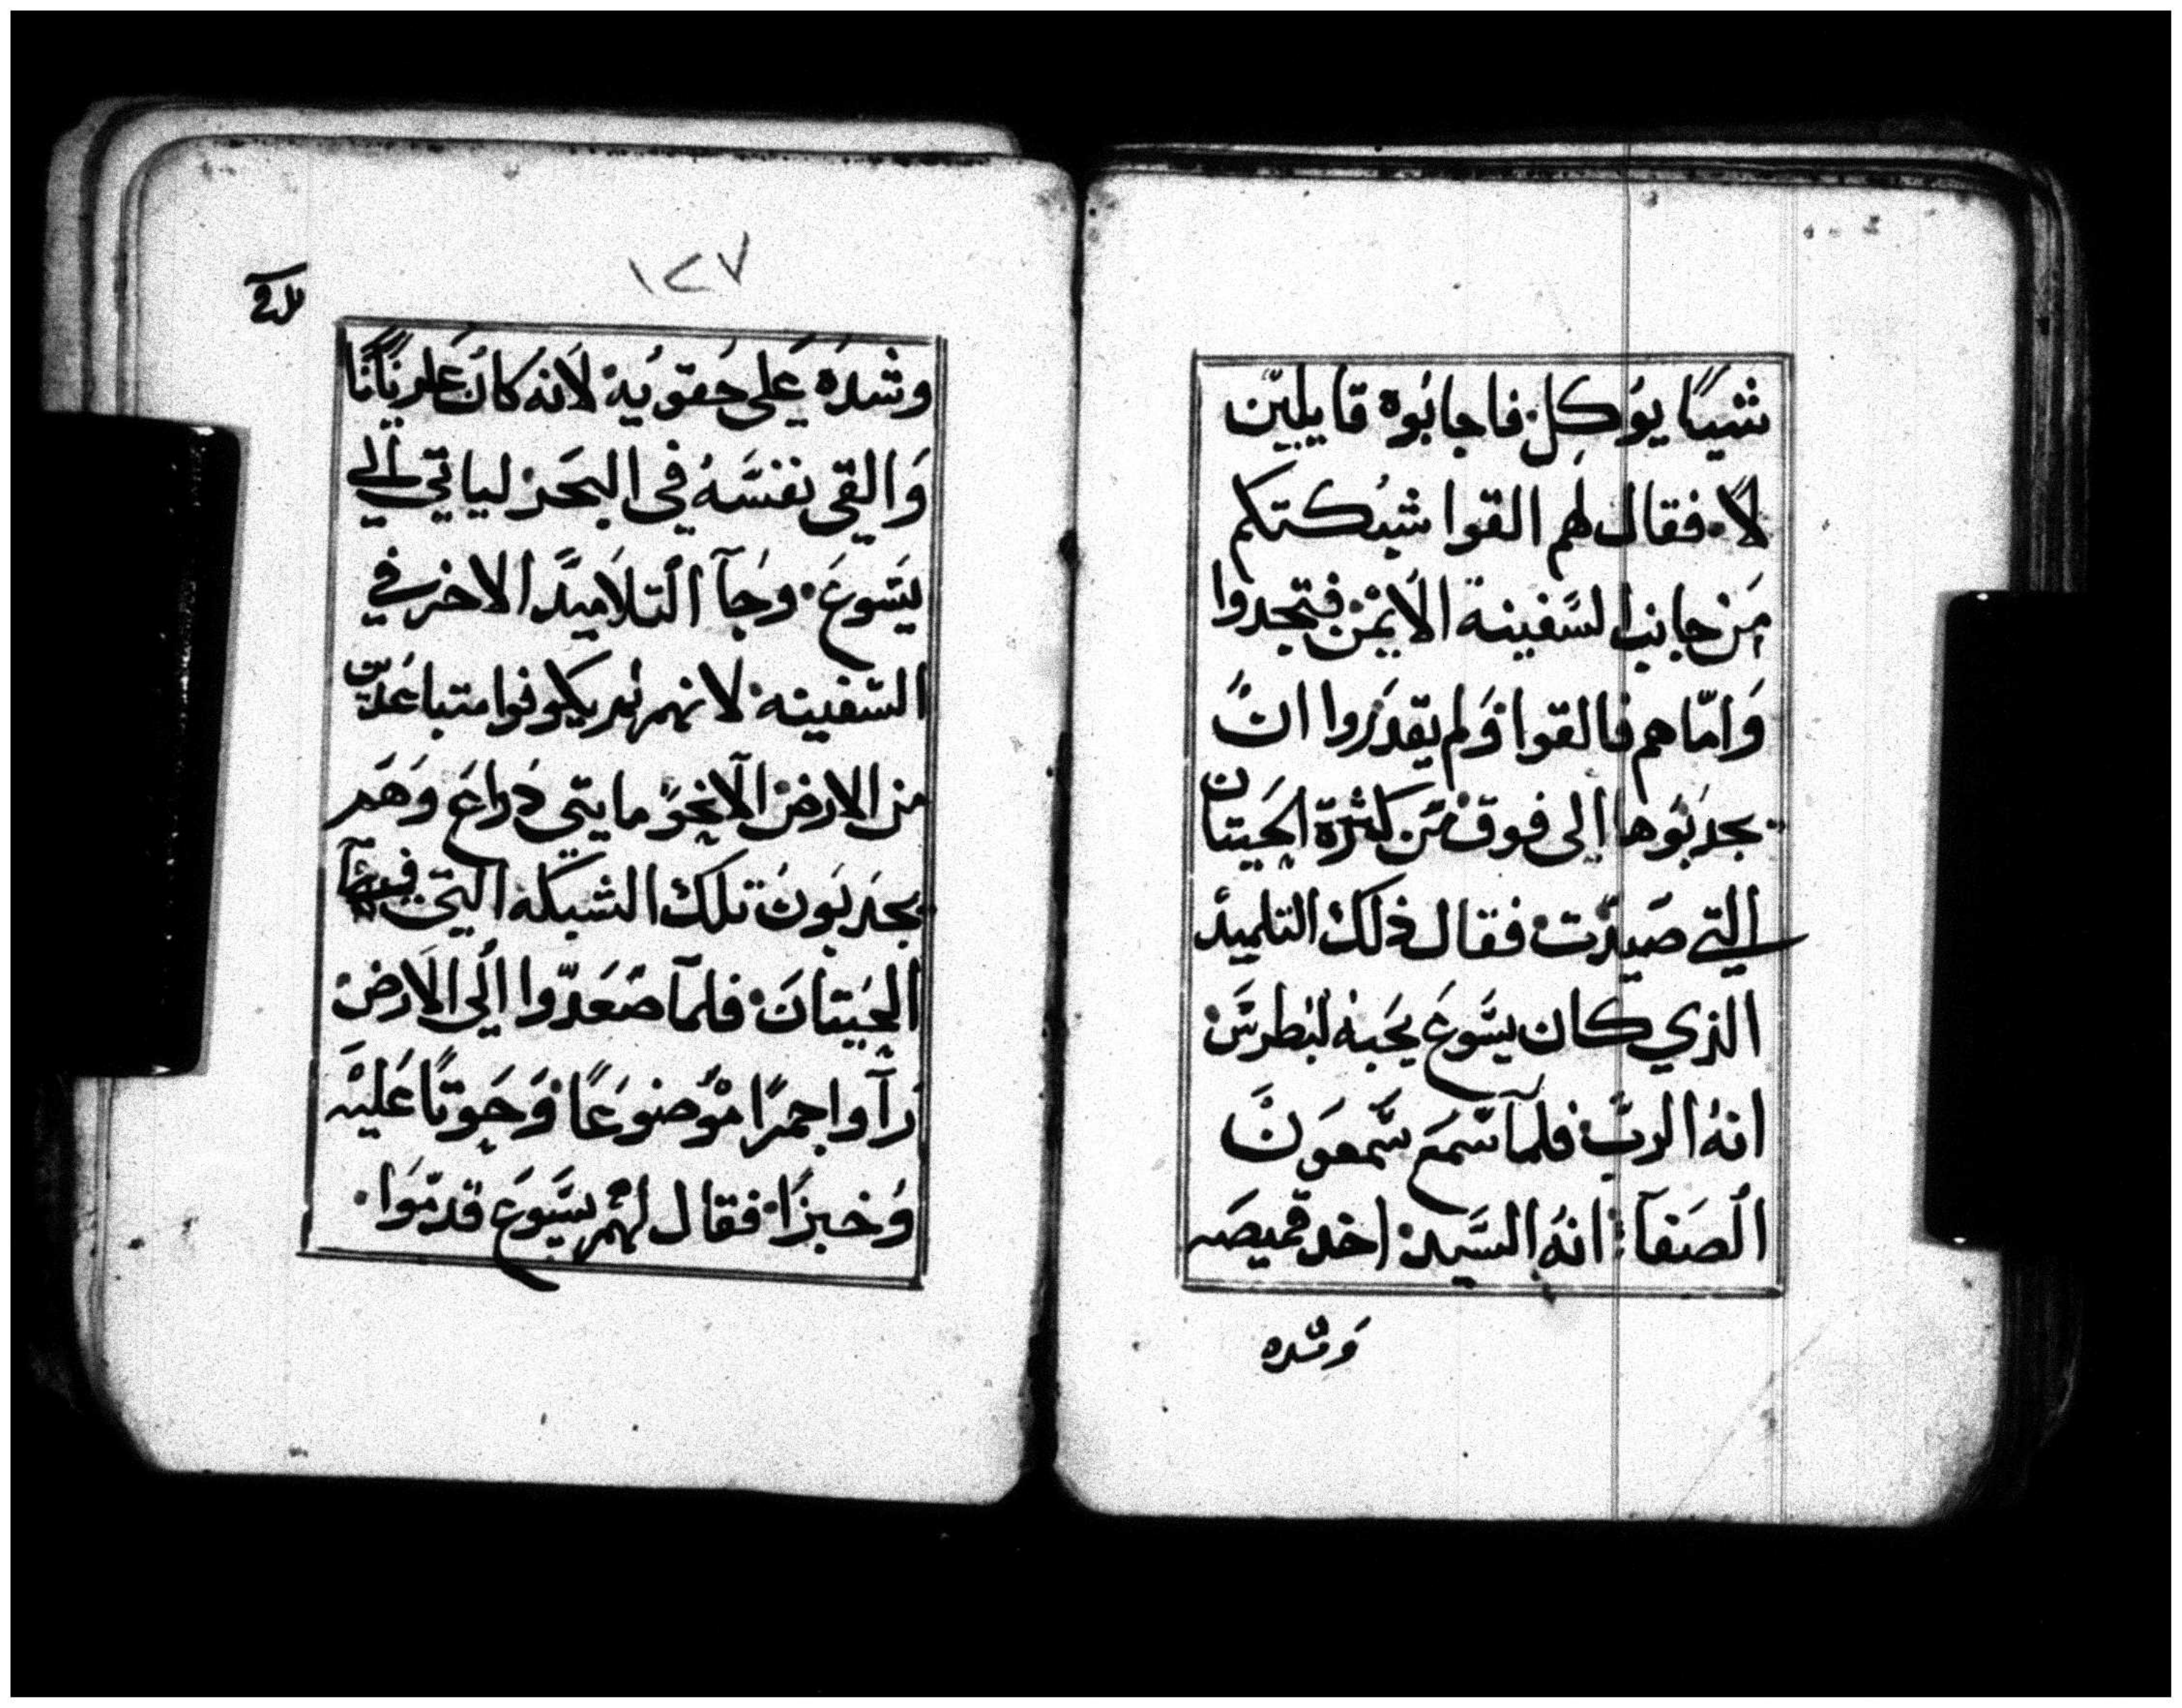 شيئًا يوُكل فاجابُوه قايلين
لا فقال لهم القوا شبُكتكم
مَن جانب السَفينة الايمْن فتجدوا
وَامّا هم فالقوا وَلم يقدَروا انَ
يجدبُوها إلى فوق مَن كثرة الحيَتان
التي صَيدَت فقال ذلك التلميد
الذي كان يسَوعَ يحَبه لبُطرسَ
انهُ الربَ فلمآ سَمعَ سَمعوَنَ
الصَفآ انهُ السَيد اخد قميصَه
وَشده
١٢٧
وشدَه عَلى حُقويُه لانه كانَ عَريَانًا
وَالقى نفسَهُ في البحَر لياتي الي
يَسَوعَ وجَآ التلَاميدَ الاخر في
السَفينه لانهم لم يكونوا متباعَدين
من الارض الا نحَوَ مايتي دراعَ وَهَم
يجدَبَونَ تلك الشبكه التي فيهآ
الحيَتانَ فلمآ صَعَدَوا اِلى الَارض
رَآوا جمرًا موُضوعًا وَحَوتًا عَليَه
وَخبزًا فقال لهَم يسَوعَ قدمَوَا